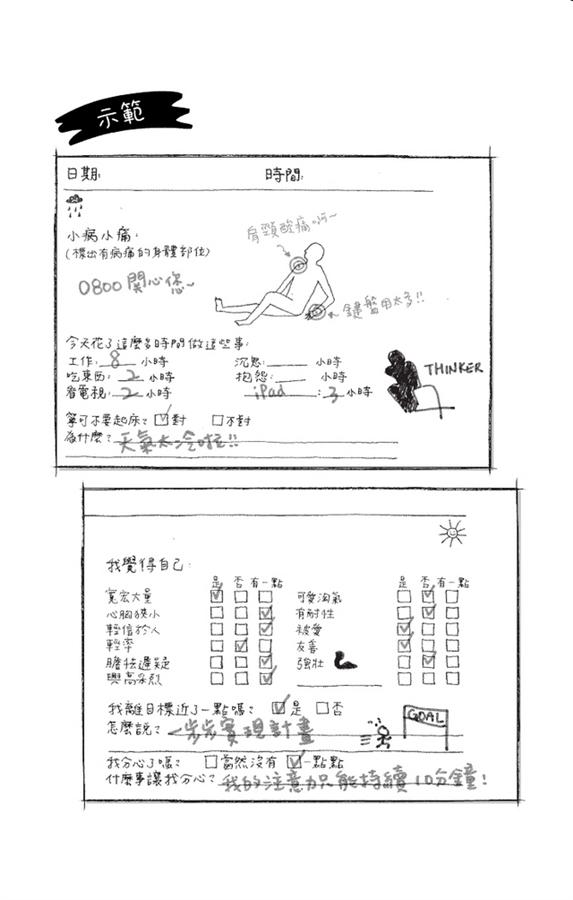 示範
日期: 時間:
小病小痛:
(標出有病痛的身體部位)
肩頸酸痛啊~
0800關心您~
鍵盤用太多!!
今天花了這麼多時間做這些事:
工作: 8 小時 沉思: 小時
吃東西: 2 小時 抱怨: 小時
看電視: 2 小時 iPad : 3 小時
THINKER
寧可不要起床? 對 不對
為什麼? 天氣太冷啦!!
我覺得自己:
是 否 有一點 是 否 有一點
寬宏大量 可愛淘氣
心胸狹小 有耐性
輕信於人 被愛
輕率 友善
膽怯遲疑 強壯
興高采烈
我離目標近了一點嗎? 是 否
GOAL
怎麼說? 一步步實現計畫
我分心了嗎? 當然沒有 一點點
什麼事讓我分心? 我的注意力只能持續10分鐘!